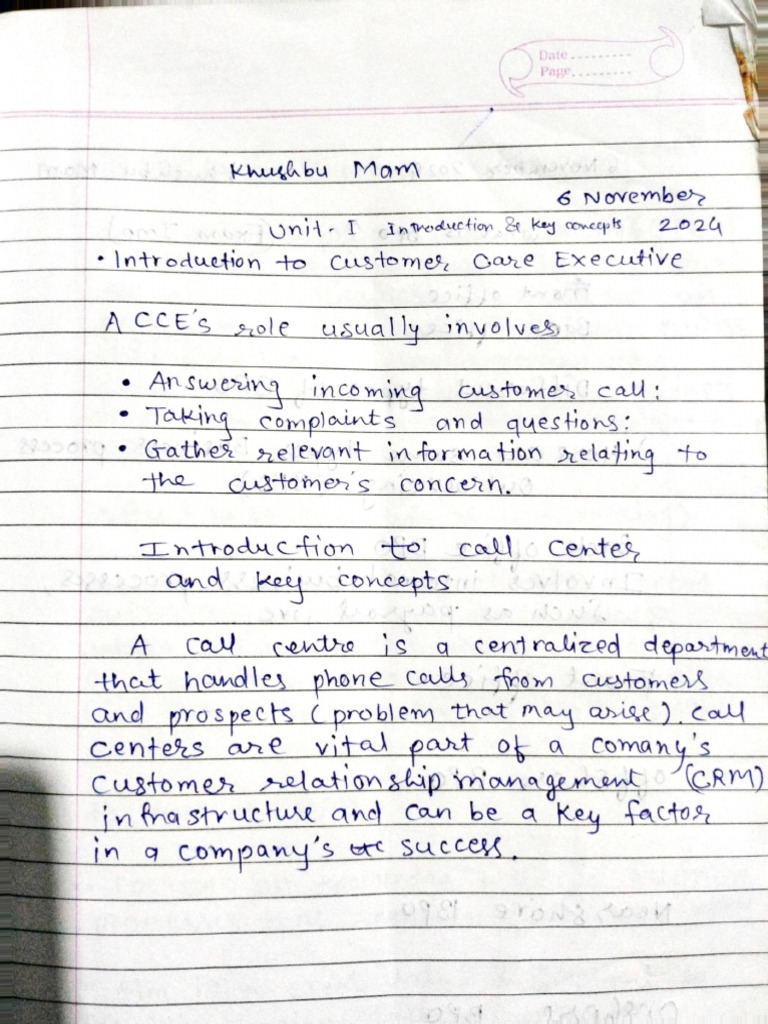 Date.........
Page.........
Khushbu Mam
6 November
Unit-I Introduction & Key concepts 2024
• Introduction to customer Care Executive
A CCE's role usually involves
• Answering incoming customer call:
• Taking complaints and questions:
• Gather relevant information relating to
the customer's concern.
Introduction to call center
and key concepts
A call centre is a centralized department
that handles phone calls from customers
and prospects (problem that may arise). Call
centers are vital part of a comany's
customer relationship management (CRM)
infrastructure and can be a key factor
in a company's success.